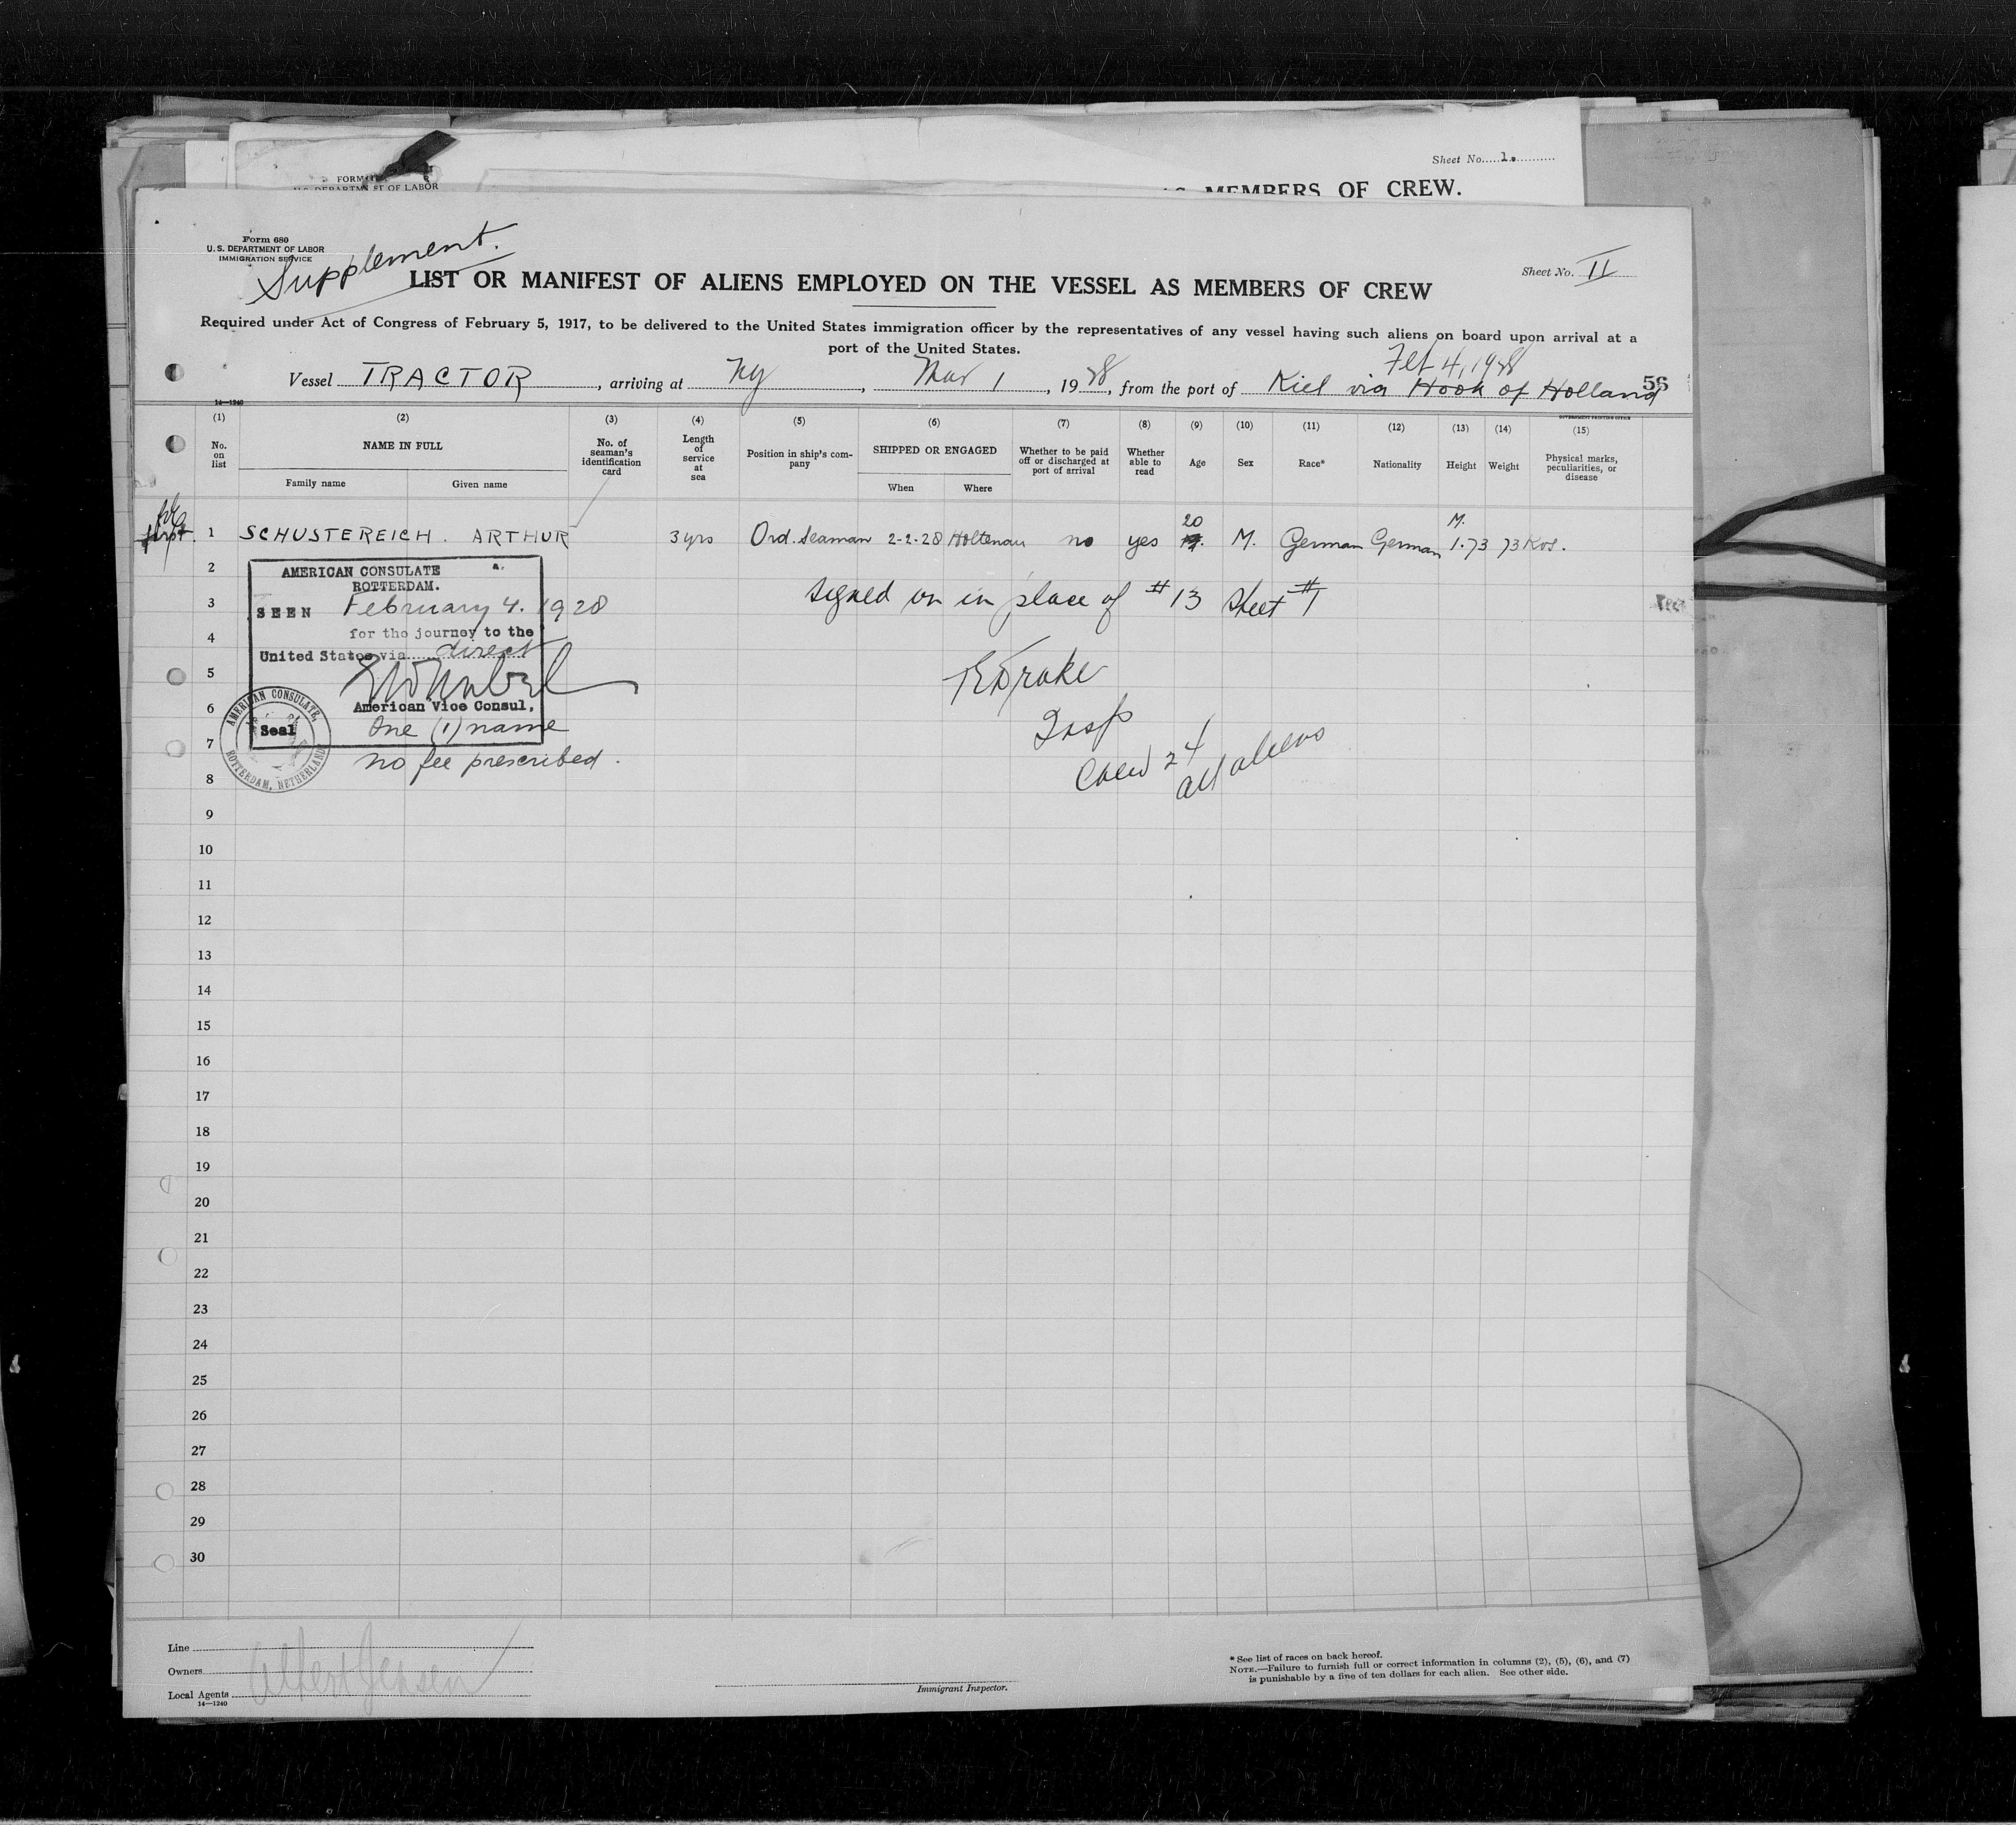 Sheet No. 1.
FORM
U.S. DEPARTMENT OF LABOR
MEMBERS OF CREW.
Form 680
U. S. DEPARTMENT OF LABOR
IMMIGRATION SERVICE
Supplement.
Sheet No. II
LIST OR MANIFEST OF ALIENS EMPLOYED ON THE VESSEL AS MEMBERS OF CREW
Required under Act of Congress of February 5, 1917, to be delivered to the United States immigration officer by the representatives of any vessel having such aliens on board upon arrival at a
port of the United States.
Feb 4, 1928
Vessel TRACTOR, arriving at NY, Mar 1, 1928, from the port of Kiel via Hook of Holland
56
14—1240
GOVERNMENT PRINTING OFFICE
(1) (2) (3) (4) (5) (6) (7) (8) (9) (10) (11) (12) (13) (14) (15)
No. on list
NAME IN FULL
Family name
Given name
No. of seaman's identification card
Length of service at sea
Position in ship's company
SHIPPED OR ENGAGED
When
Where
Whether to be paid off or discharged at port of arrival
Whether able to read
Age
Sex
Race*
Nationality
Height
Weight
Physical marks, peculiarities, or disease
20
M.
first. 1 SCHUSTEREICH. ARTHUR 3 yrs Ord. Seaman 2-2-28 Holtenau no yes M. German German 1.73 73 Kos.
2
3
4
5
6
7
8
9
10
11
12
13
14
15
16
17
18
19
20
21
22
23
24
25
26
27
28
29
30
AMERICAN CONSULATE
ROTTERDAM.
SEEN February 4. 1928
for the journey to the
United States via direct
American Vice Consul,
Seal
One (1) name
no fee prescribed.
AMERICAN CONSULATE,
ROTTERDAM, NETHERLANDS
signed on in place of #13 Sheet #1
R Drake
Insp
Crew 24
all aliens
Line
Owners
Local Agents
Albert Jensen
14—1240
Immigrant Inspector.
* See list of races on back hereof.
NOTE.—Failure to furnish full or correct information in columns (2), (5), (6), and (7)
is punishable by a fine of ten dollars for each alien. See other side.